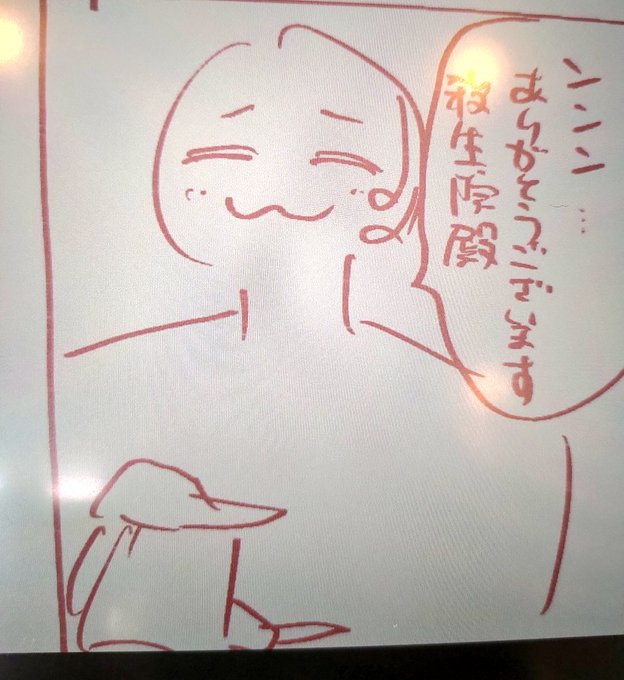 ンンン…
ありがとうございます
殺生院殿